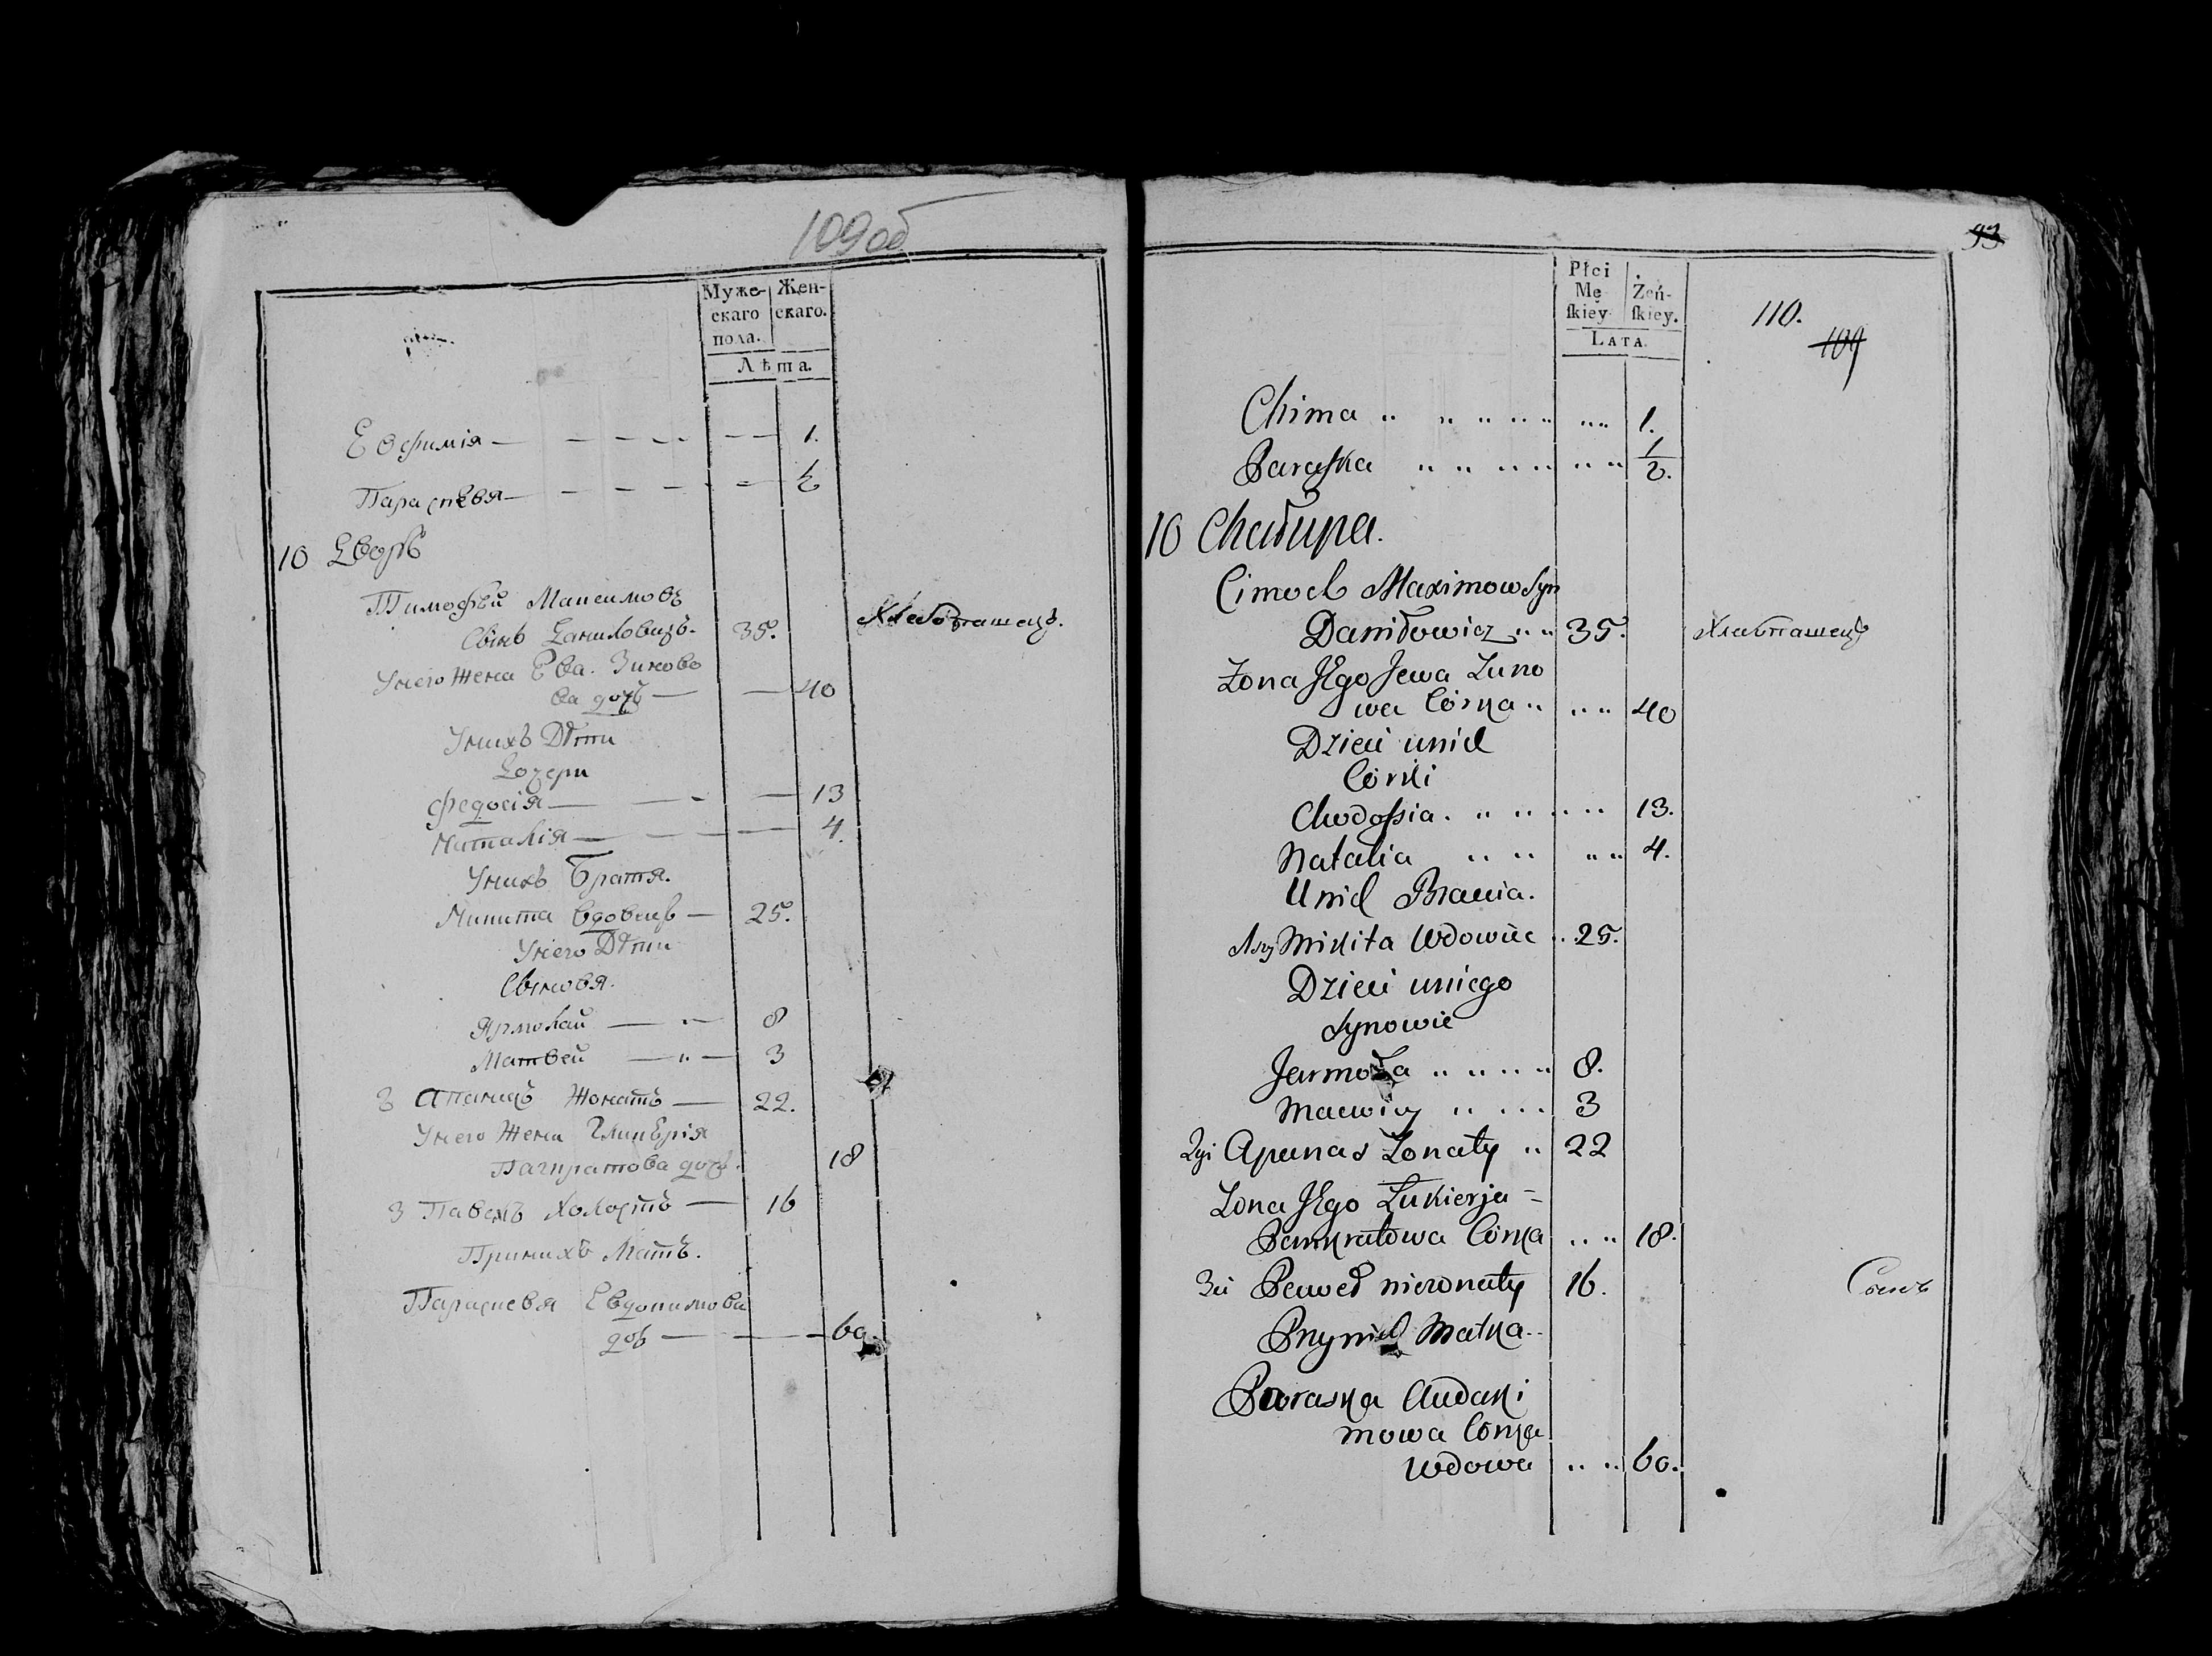 109об
Муже- Жен-
скаго скаго.
пола.
Лѣта.
Евфимія — — — — — — 1.
Параскевя — — — — — — ½
10 Дворъ
Тимофѣй Максимовъ
Сынъ Даниловичъ. 35. Хлебопашецъ.
Унего жена Ева. Зиново
ва дочь — — 40
Унихъ Дѣти
Дочери
Федосія — — - — 13
Наталія — — — — — 4.
Унихъ Братя.
Никита вдовецъ — 25.
Унего Дѣти
Сыновя.
Ярмолай — „ — 8
Матвей — „ — 3
3 Апанасъ Жонатъ — 22.
Унего Жена Гликерія
Панкратова дочь. 18
3 Павелъ Холостъ — 16
Принихъ Мать.
Параскевя Евдокимова
дочь — — — 60.
93
Płci
Mę- Żeń-
skiey skiey.
LATA.
110.
109
Chima „ „ „ „ „ „ 1.
Paraska „ „ „ „ „ „ ½.
10 Chałupa.
Cimoch Maximow Syn
Daniłowicz „ „ 35. Хлебпашецъ
Żona Jego Jewa Zuno
wa Córka „ „ „ 40
Dzieci unich
Córki
Chodossia. „ „ „ „ 13.
Natalia „ „ „ „ 4.
Unich Bracia.
Mikita Wdowiec „ 25.
Dzieci uniego
Synowie
Jarmoła „ „ „ „ 8.
Maciey „ „ „ 3
2gi Apanas Żonaty „ 22
Żona Jego Łukierja =
Pankratowa Córka „ „ 18.
3ci Paweł nieżonaty 16.
Przynich Matka „
Paraska Audaki
mowa Córka
Wdowa „ „ 60.